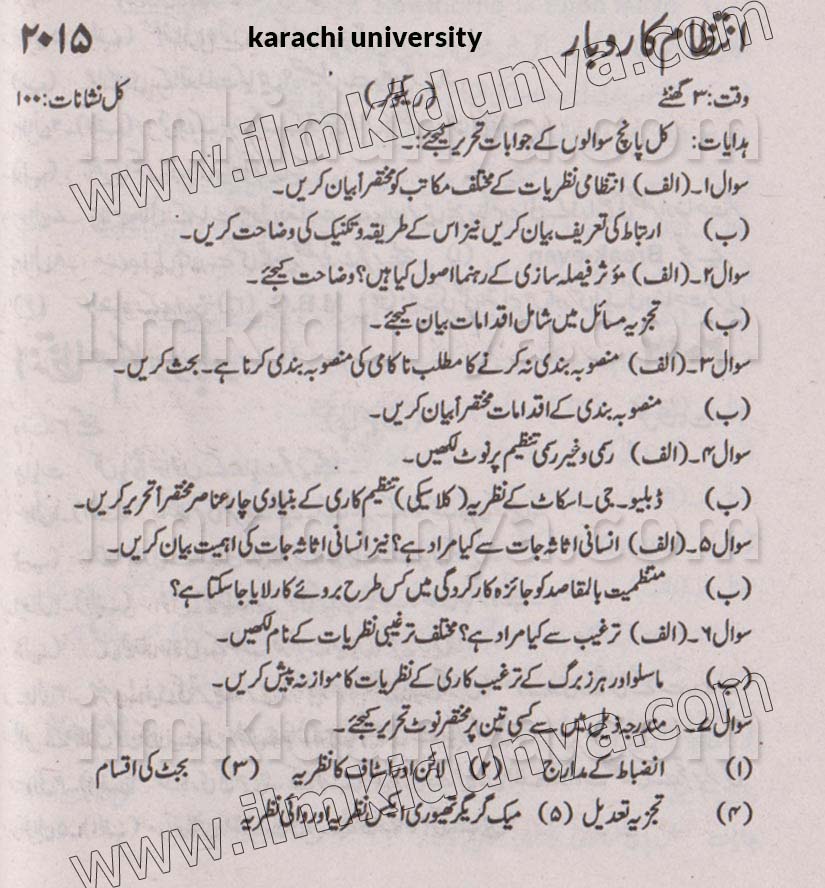 انتظام کاروبار karachi university ۲۰۱۵
وقت: ۳ گھنٹے (ریگولر) کل نشانات: ۱۰۰
ہدایات: کل پانچ سوالوں کے جوابات تحریر کیجئے:۔
سوال ۱۔ (الف) انتظامی نظریات کے مختلف مکاتب کو مختصراً بیان کریں۔
(ب) ارتباط کی تعریف بیان کریں نیز اس کے طریقہ و تکنیک کی وضاحت کریں۔
سوال ۲۔ (الف) مؤثر فیصلہ سازی کے رہنما اصول کیا ہیں؟ وضاحت کیجئے۔
(ب) تجزیہ مسائل میں شامل اقدامات بیان کیجئے۔
سوال ۳۔ (الف) منصوبہ بندی نہ کرنے کا مطلب ناکامی کی منصوبہ بندی کرنا ہے۔ بحث کریں۔
(ب) منصوبہ بندی کے اقدامات مختصراً بیان کریں۔
سوال ۴۔ (الف) رسمی و غیر رسمی تنظیم پر نوٹ لکھیں۔
(ب) ڈبلیو۔ جی۔ اسکاٹ کے نظریہ (کلاسیکی) تنظیم کاری کے بنیادی چار عناصر مختصراً تحریر کریں۔
سوال ۵۔ (الف) انسانی اثاثہ جات سے کیا مراد ہے؟ نیز انسانی اثاثہ جات کی اہمیت بیان کریں۔
(ب) منتظمیت بالمقاصد کو جائزہ کارکردگی میں کس طرح بروئے کار لایا جا سکتا ہے؟
سوال ۶۔ (الف) ترغیب سے کیا مراد ہے؟ مختلف ترغیبی نظریات کے نام لکھیں۔
(ب) ماسلو اور ہرزبرگ کے ترغیب کاری کے نظریات کا موازنہ پیش کریں۔
سوال ۷۔ مندرجہ ذیل میں سے کسی تین پر مختصر نوٹ تحریر کیجئے۔
(۱) انضباط کے مدارج (۲) لائن اور اسٹاف کا نظریہ (۳) بجٹ کی اقسام
(۴) تجزیہ تعدیل (۵) میک گریگر تھیوری ایکس نظریہ اور وائی نظریہ
www.ilmkidunya.com
ilmkidunya.com
ilmkidunya.com
ilmkidunya.com
ilmkidunya.com
www.ilmkidunya.com